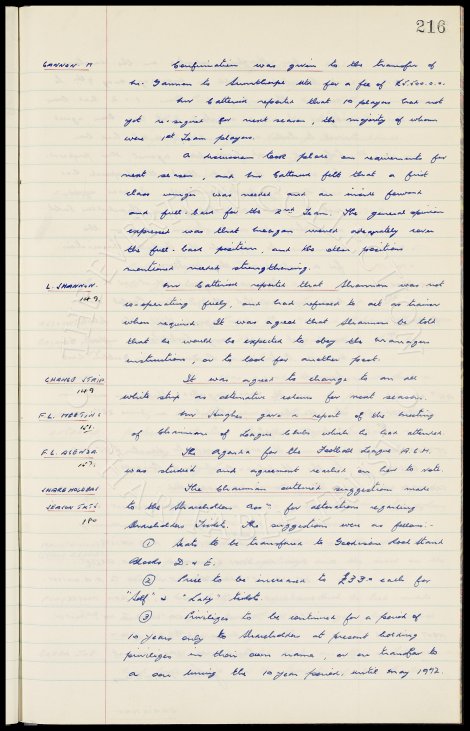 216
GANNON. M
Confirmation was given to the transfer of
M. Gannon to Scunthorpe Utd for a fee of
Mr Catterick reported that 10 players had not
yet re-signed for next season, the majority of whom
were 1st Team players.
A discussion took place on requirements for
next season, and Mr Catterick felt that a first
class winger was needed and an inside forward
and full-back for the 2nd Team. The general opinion
expressed was that Meagan would adequately cover
the full-back position, and the other positions
mentioned needed strengthening.
L. SHANNON.
149.
Mr Catterick reported that Shannon was not
co-operating fully, and had refused to act as trainer
when required. It was agreed that Shannon be told
that he would be expected to obey the Managers
instructions, or to look for another post.
CHANGE STRIP
149
It was agreed to change to an all
white strip as alternative colours for next season.
F.L. MEETING
151.
Mr Hughes gave a report of the meeting
of Chairmen of League Clubs which he had attended
F.L. AGENDA
157.
The Agenda for the Football League A.G.M.
was studied and agreement reached on how to vote.
SHAREHOLDERS
SEASON TKTS.
180
The Chairman outlined suggestions made
to the Shareholders Assn for alterations regarding
Shareholders Tickets. The suggestions were as follows:-
① Seats to be transferred to Goodison Road Stand
Blocks D. & E.
② Price to be increased to £33 each for
"Self" & "Lady" tickets.
③ Privileges to be continued for a period of
10 years only to Shareholders at present holding
privileges in their own name, or on transfer to
a son during the 10 year period, until May 1972.